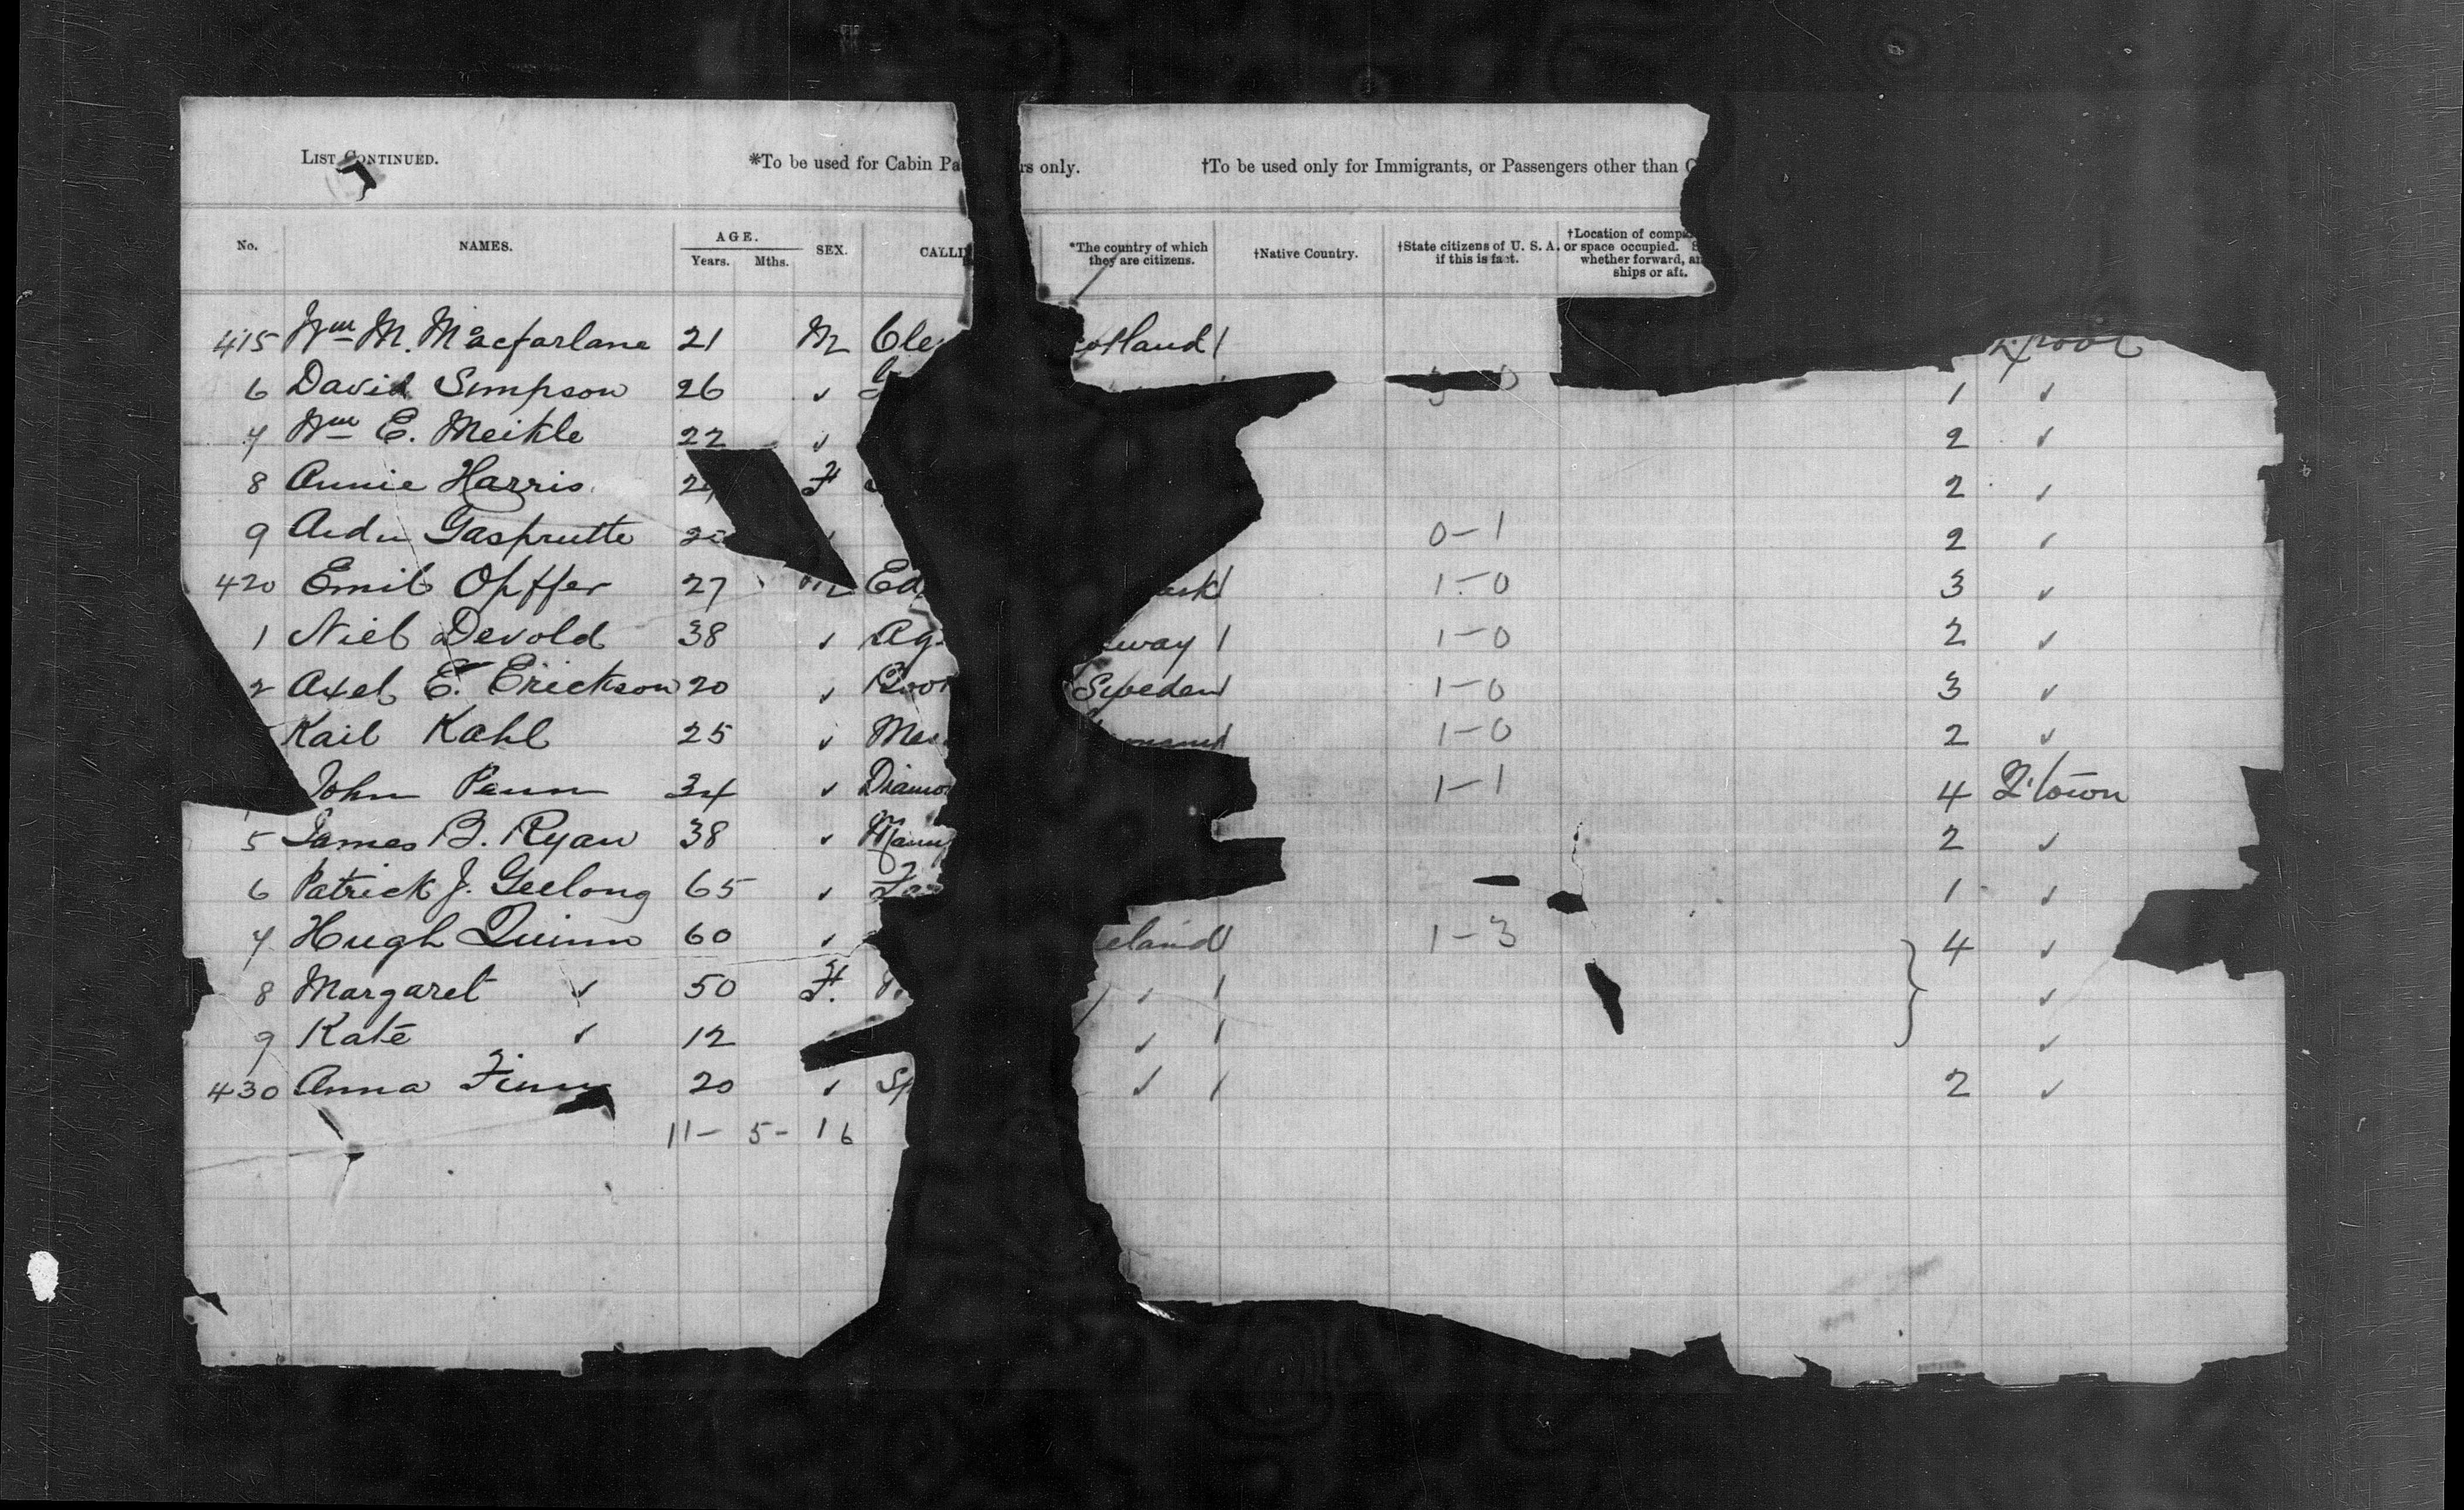 LIST CONTINUED. *To be used for Cabin Pa rs only. †To be used only for Immigrants, or Passengers other than C
No. NAMES. AGE. Years. Mths. SEX. CALLI *The country of which they are citizens. †Native Country. †State citizens of U. S. A. if this is fact. †Location of comp or space occupied. whether forward, a ships or aft.
415 Wm M. Macfarlane 21 M Cle otland L'pool
6 David Simpson 26 ✓ 1 ✓
7 Wm E. Meikle 22 ✓ 2 ✓
8 Annie Harris 2 F 2 ✓
9 Gasprutte 2 0-1 2 ✓
420 Emil Opffer 27 M Ed ark 1-0 3 ✓
1 Niel Devold 38 ✓ Ag way 1-0 2 ✓
2 Axel E. Erickson 20 ✓ Sweden 1-0 3 ✓
Kail Kahl 25 ✓ Me 1-0 2 ✓
John Penn 34 ✓ Diamo 1-1 4 Q'town
5 James B. Ryan 38 ✓ Manu 2 ✓
6 Patrick J. Geelong 65 ✓ 1 ✓
7 Hugh Quinn 60 ✓ eland 1-3 4 ✓
8 Margaret ✓ 50 F. ✓ ✓
9 Kate ✓ 12 ✓ ✓
430 Anna Finn 20 ✓ Sp ✓ 2 ✓
11- 5- 16